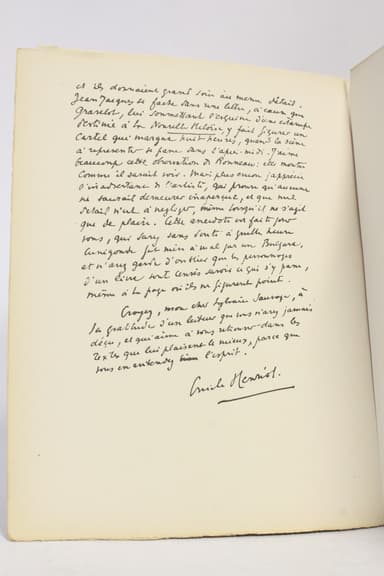 et ils donnaient grand soin au menu détail.
Jean Jacques se fache dans une lettre, à cause que
Gravelot, lui soumettant l'esquisse d'une estampe
destinée à la Nouvelle Héloïse, y fait figurer un
Cartel qui marque huit heures, quand la scène
à représenter se passe dans l'après-midi. J'aime
beaucoup cette observation de Rousseau: elle montre
comme il savait voir. Mais plus encore j'apprécie
l'inadvertance de l'artiste, qui prouve qu'aucune
ne saurait demeurer inaperçue, et que nul
détail n'est à négliger, même lorsqu'il ne s'agit
que de plaire. Cette anecdote est faite pour
vous, qui savez sans doute à quelle heure
Cunégonde fut mise à mal par un Bulgare,
et n'avez garde d'oublier que les personnages
d'un livre sont censés savoir ce qui s'y passe,
même à la page où ils ne figurent point.
Croyez, mon cher Sylvain Sauvage, à
la gratitude d'un lecteur que vous n'avez jamais
déçu, et qui aime à vous retrouver dans les
textes que lui plaisent le mieux, parce que
vous en entendez l'esprit.
Emile Henriot.